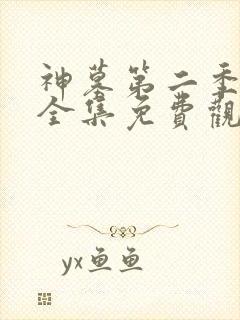 神墓第二季
全集免費觀
yx鱼鱼